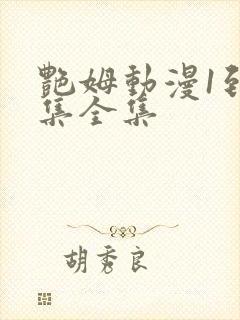 艷姆動漫1到
集全集
胡秀良